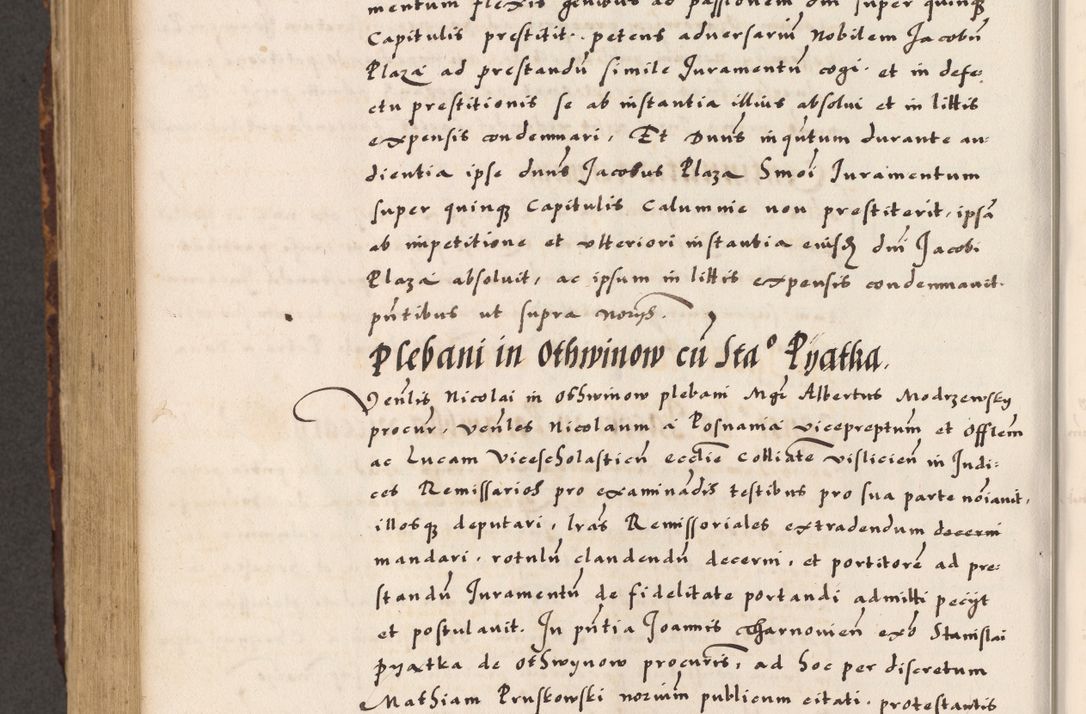 mentum flexis genibus ad passionem dni super quinqȝ
Capitulis prestitit. petens adversariū Nobilem Jacobū
Plaza ad prestandū simile Juramentū cogi. et in defe
ctu prestitionis se ab instantia illius absolui et in littis
expensis condemnari, Et Dnus inqntum durante au-
dientia ipse dnus Jacobus Plaza Smoi Juramentum
super quinqȝ Capitulis Calumnie non prestiterit, ipsū
ab impetitione et vlteriori instantia eiusd dni Jacobi
Plaza absoluit, ac ipsum in littis expensis condemnauit.
pntibus ut supra norijs.
Plebani in Othwinow cū Sta° Pyatka.
Venlis Nicolai in Othwinow plebani Mgr Albertus Modrzewsky
procur, venles Nicolaum a Posnania vicepreptum et Offlem
ac Lucam Vicescholasticū ecclie Colliate visliciēn in Judi:
ces Remissarios pro examinādis testibus pro sua parte noiauit,
illosqȝ deputari, lras Remissoriales extradendum decerni
mandari. rotulū claudendū decerni, et portitorē ad pre:
standū Juramentū de fidelitate portandi admitti pecijt
et postulauit. In pntia Joannis Tharnouien ex° Stanislai
Pyatka de Othwynow procuris, ad hoc per discretum
Mathiam Pruskowski norium publicum citati. protestantis